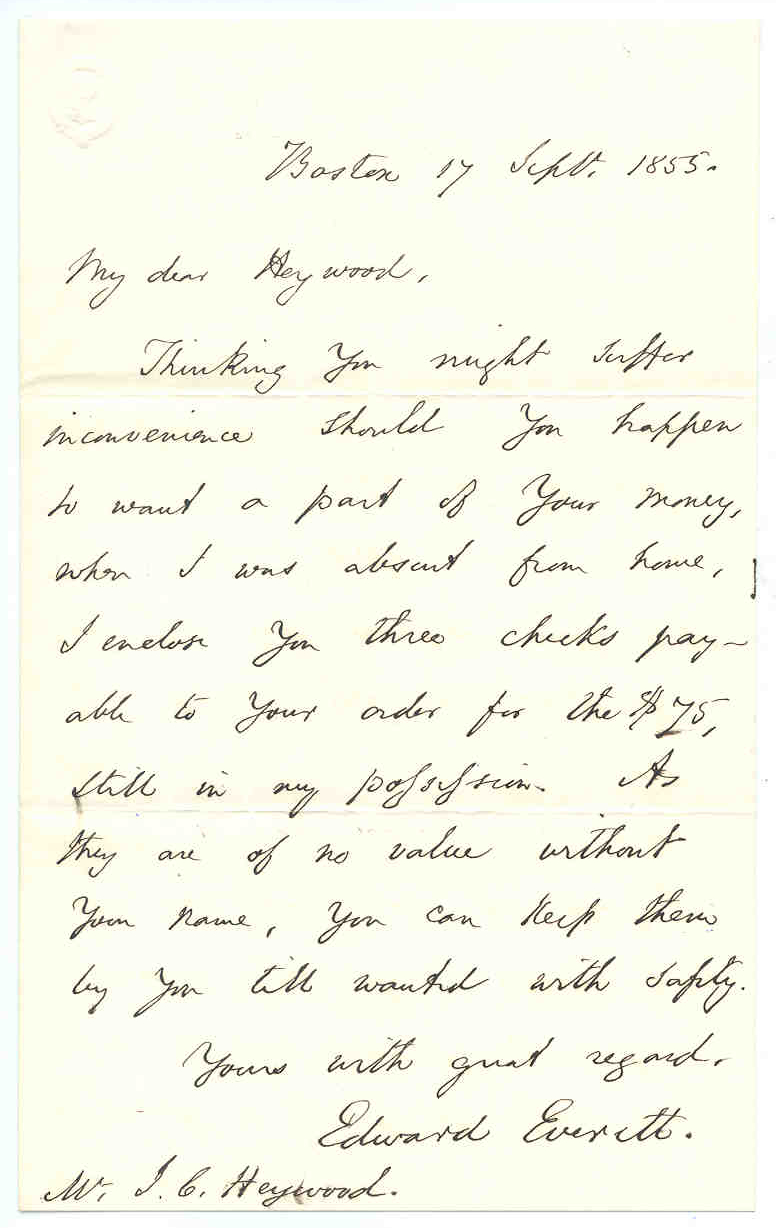 Boston 17 Sept. 1855.
My dear Heywood,
Thinking you might suffer
inconvenience should you happen
to want a part of your money,
when I was absent from home,
I enclose you three checks pay-
able to your order for the $75,
still in my possession. As
they are of no value without
your name, you can keep them
by you till wanted with safety.
Yours with great regard,
Edward Everett.
Mr. J. C. Heywood.